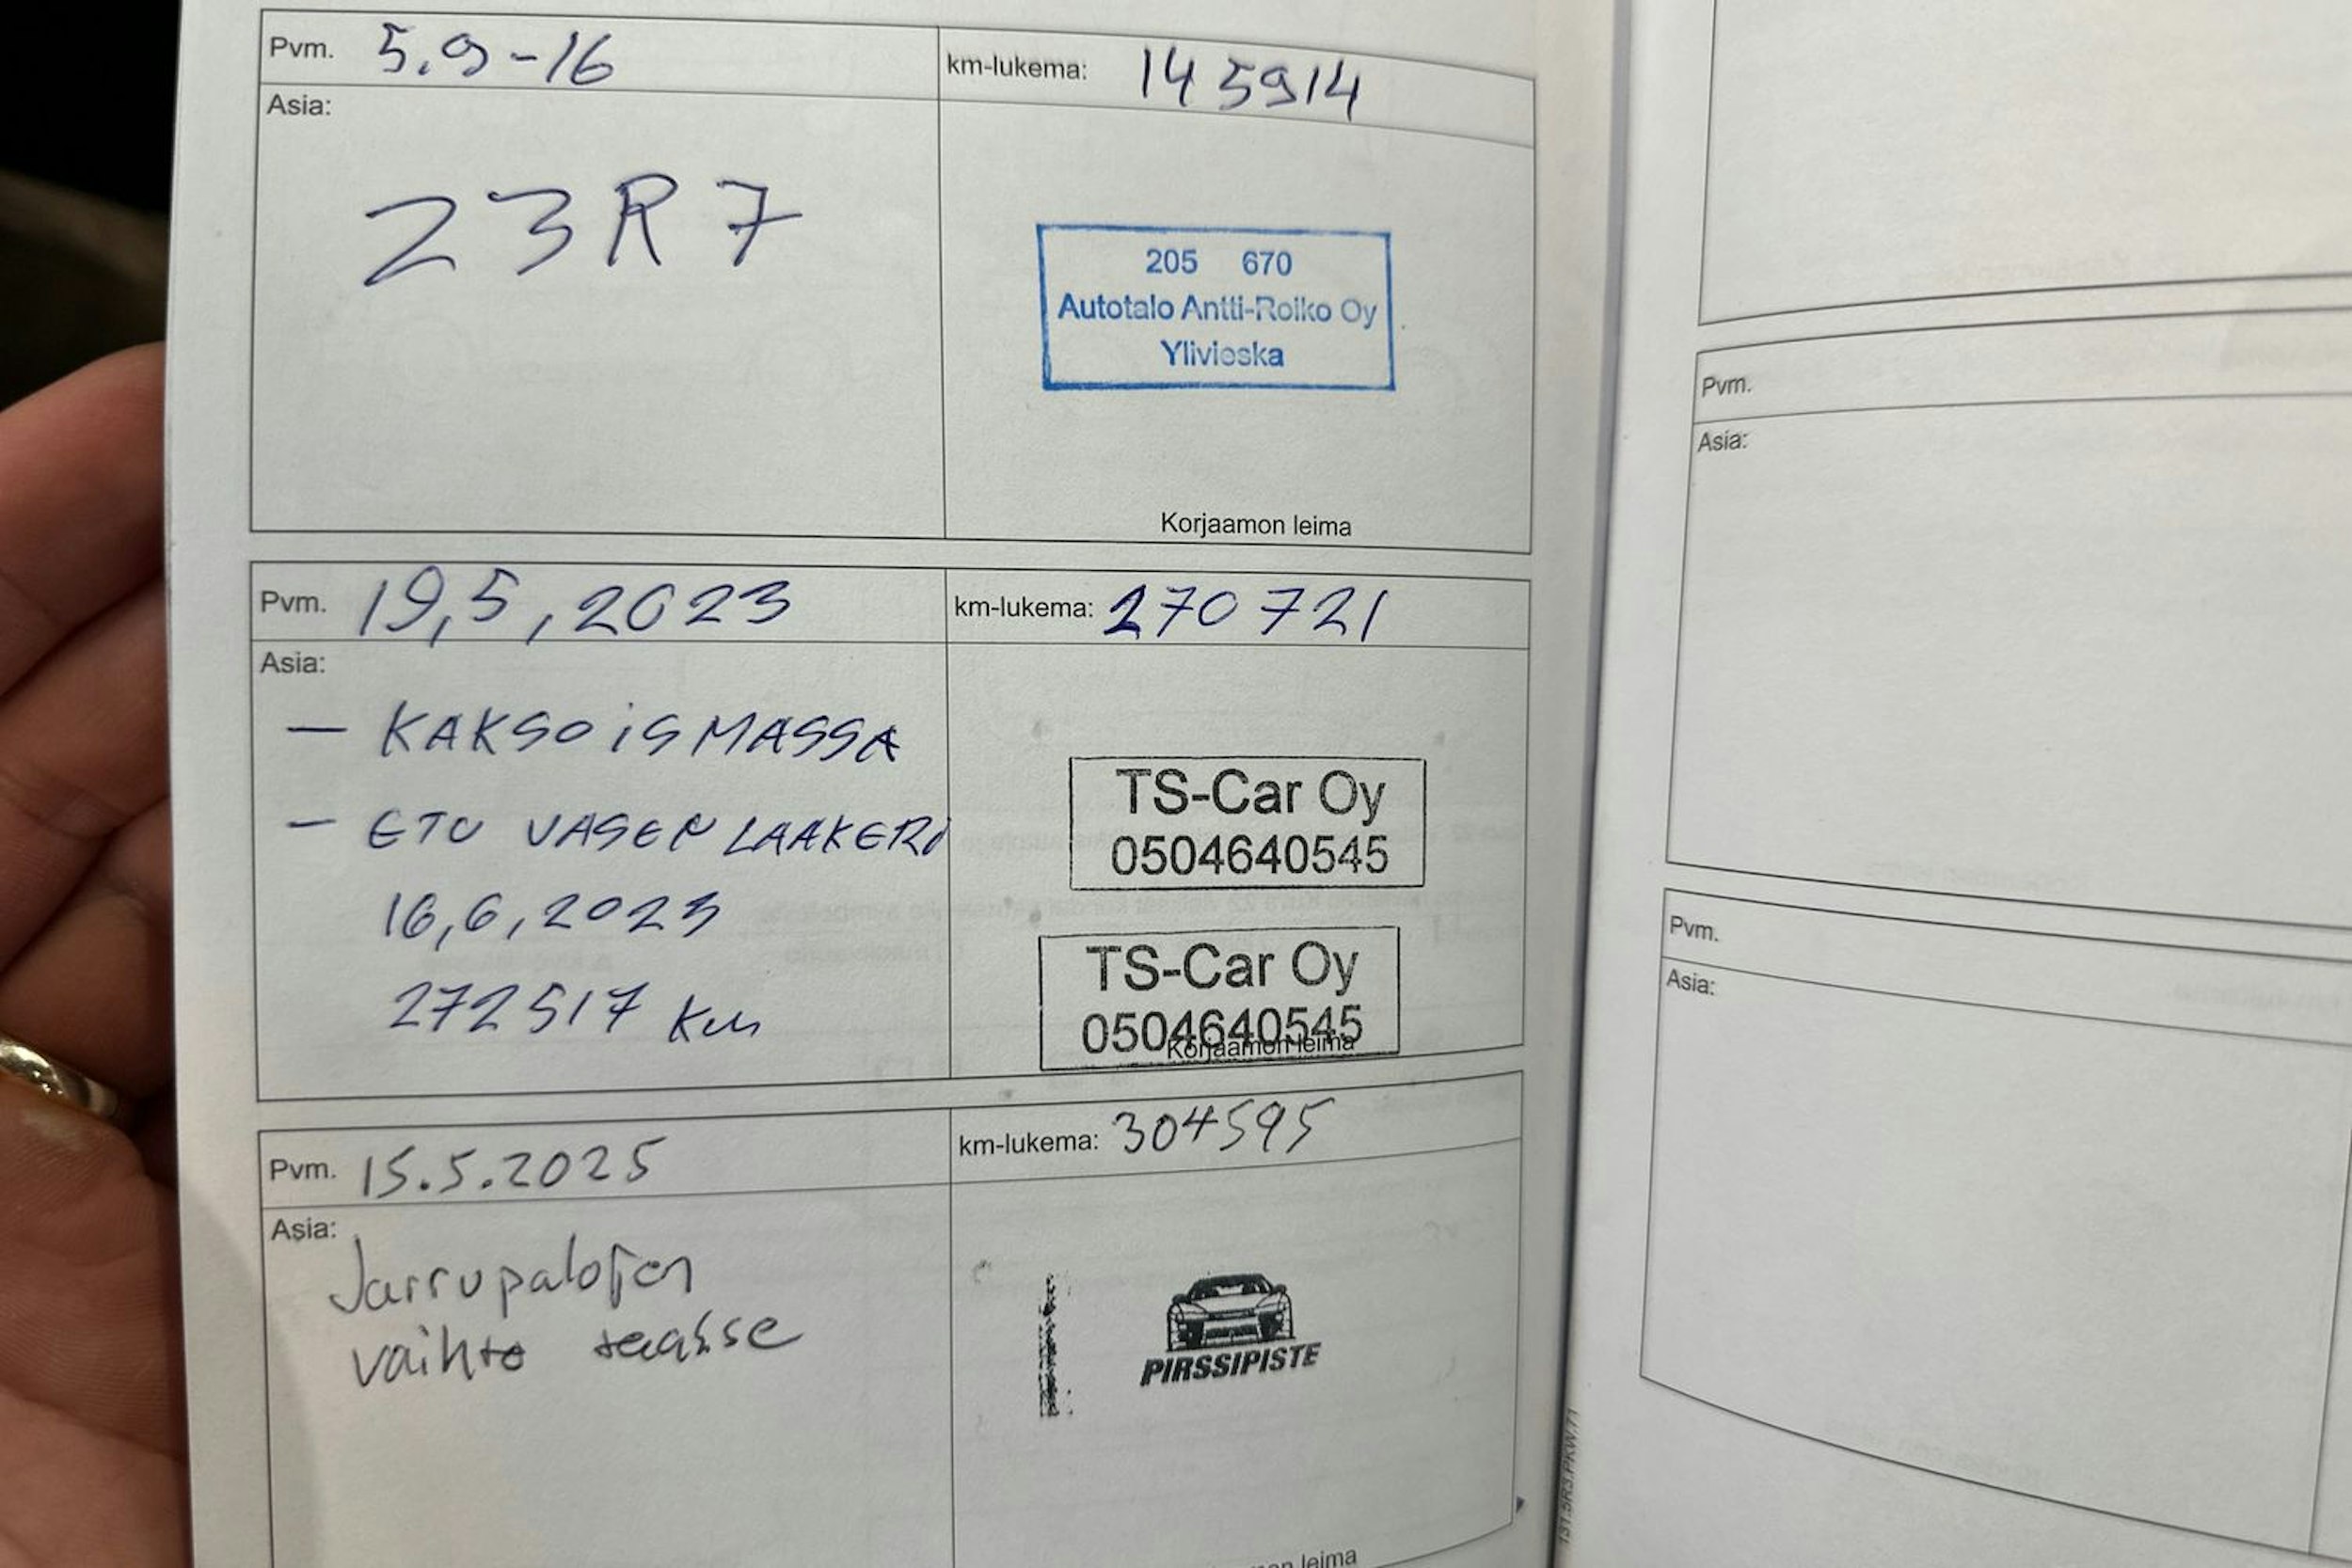 Pvm. 5.9-16
km-lukema: 145914
Asia:
23R7
205 670
Autotalo Antti-Roiko Oy
Ylivieska
Korjaamon leima
Pvm. 19,5,2023
km-lukema: 270 721
Asia:
— KAKSOiSMASSA
— ETU VASEN LAAKERI
16,6,2023
272517 Km
TS-Car Oy
0504640545
TS-Car Oy
0504640545
Korjaamon leima
Pvm. 15.5.2025
km-lukema: 304595
Asia:
Jarrupalojen
vaihto taakse
PIRSSIPISTE
leima
Pvm.
Asia:
Pvm.
Asia: